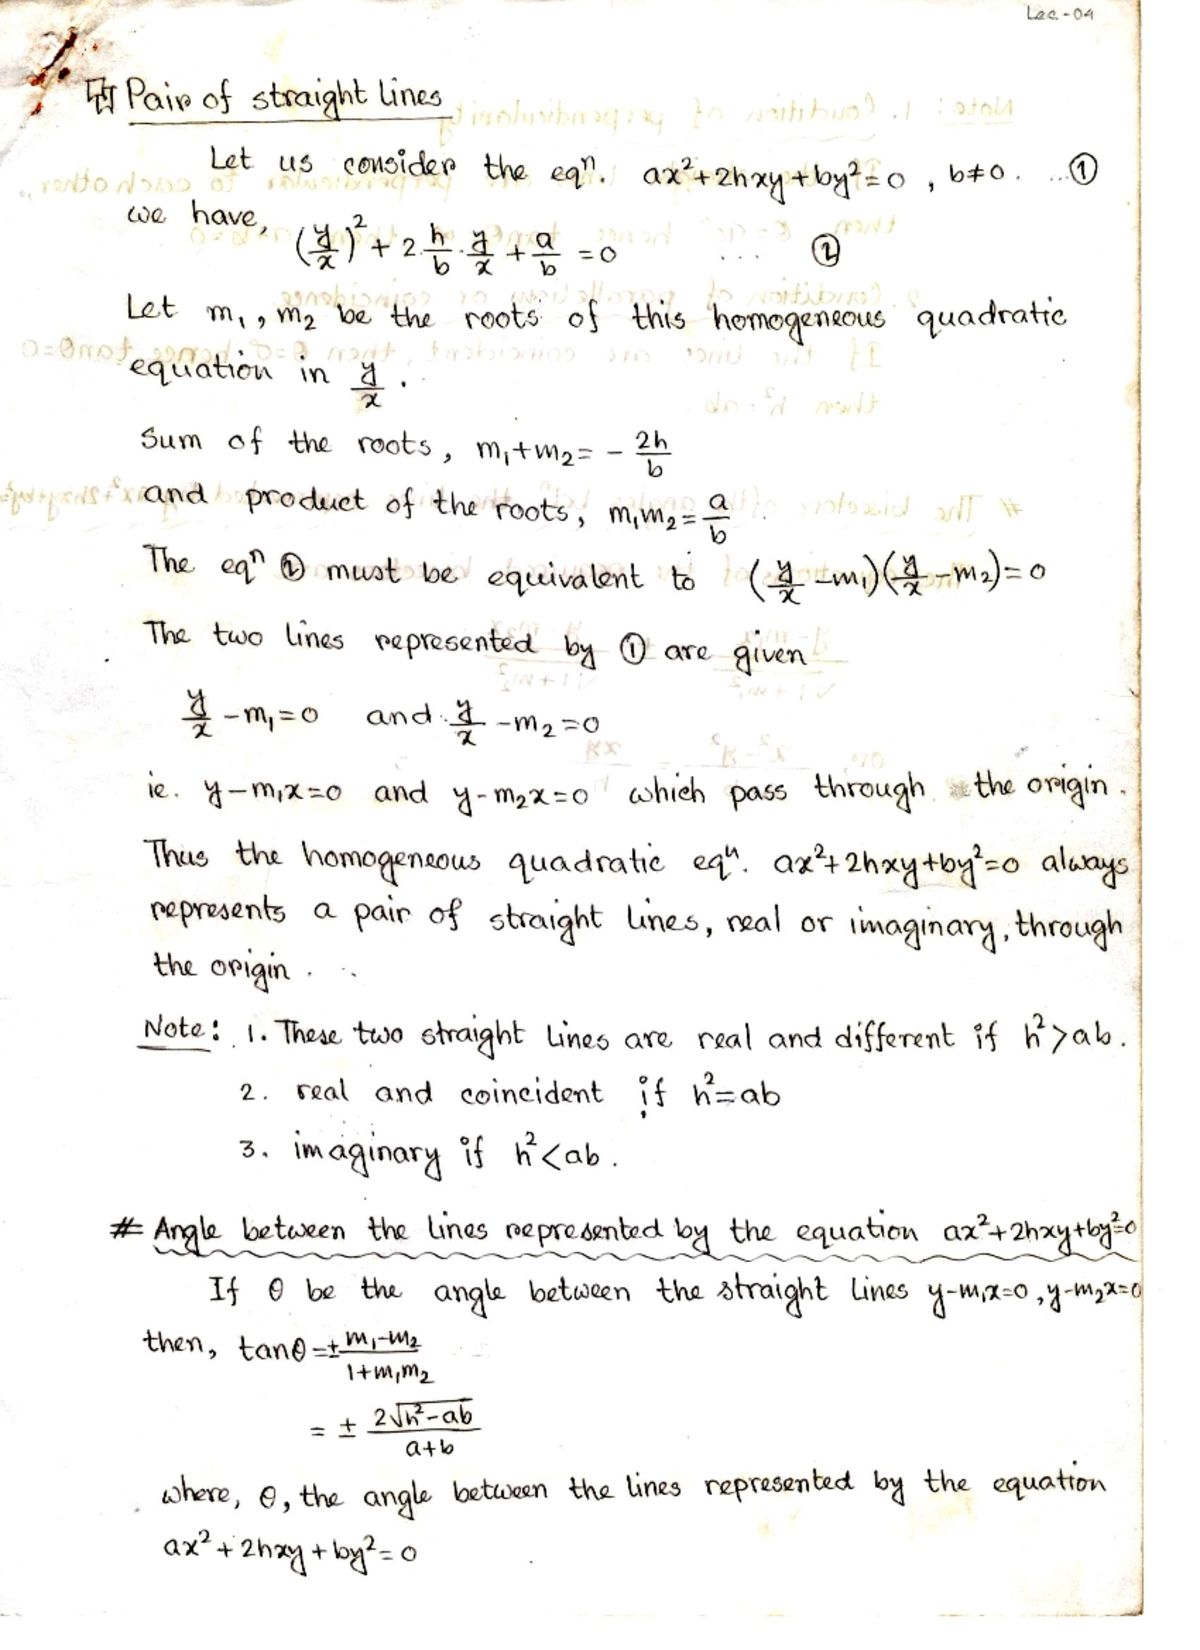 Lec-04
Pair of straight lines
Let us consider the eqⁿ. ax²+2hxy+by²=0, b≠0. ...①
we have,
(y/x)² + 2.h/b.y/x + a/b = 0 ... ②
Let m₁, m₂ be the roots of this homogeneous quadratic
equation in y/x.
Sum of the roots, m₁+m₂ = - 2h/b
and product of the roots, m₁m₂ = a/b
The eqⁿ ② must be equivalent to (y/x -m₁)(y/x -m₂)=0
The two lines represented by ① are given
y/x -m₁=0 and y/x -m₂=0
ie. y-m₁x=0 and y-m₂x=0 which pass through the origin.
Thus the homogeneous quadratic eqⁿ. ax²+2hxy+by²=0 always
represents a pair of straight lines, real or imaginary, through
the origin.
Note: 1. These two straight lines are real and different if h²>ab.
2. real and coincident if h²=ab
3. imaginary if h²<ab.
# Angle between the lines represented by the equation ax²+2hxy+by²=0
If θ be the angle between the straight lines y-m₁x=0, y-m₂x=0
then, tanθ = ± (m₁-m₂)/(1+m₁m₂)
= ± 2√(h²-ab)/(a+b)
where, θ, the angle between the lines represented by the equation
ax²+2hxy+by²=0